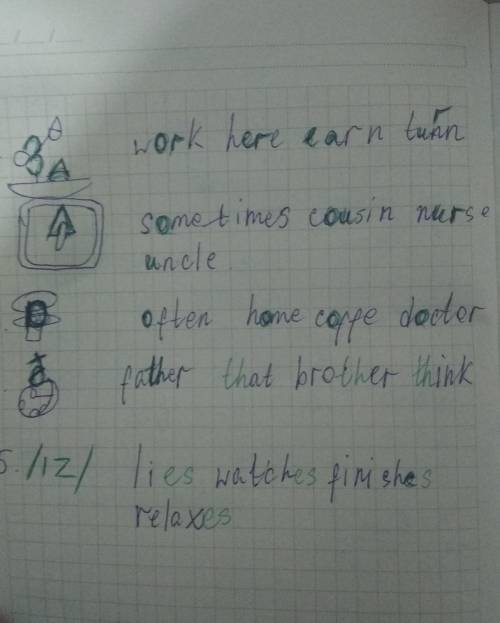 work here earn turn
sometimes cousin nurse
uncle
often home coppe doctor
father that brother think
5. /IZ/ lies watches finishes
relaxes